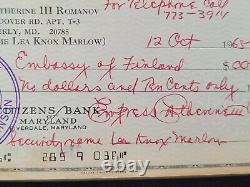 THERINE III ROMANOV For Telephone Call
DOVER RD. APT. T-3 773-3914
ERLY, MD. 20785
ME LEA KNOX MARLOW 12 Oct 1963
Embassy of Finland $.00
No dollars and Cent only
CITIZENS BANK Empress
OF MARYLAND
RIVERDALE, MARYLAND
Security name Lea Knox Marlow
289 9 039